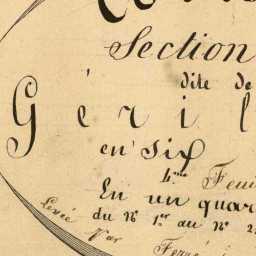 Section
dite de
Géril
en six
4.me Feui
En un quar
du N° 1.er au N° 2
Levée
Par